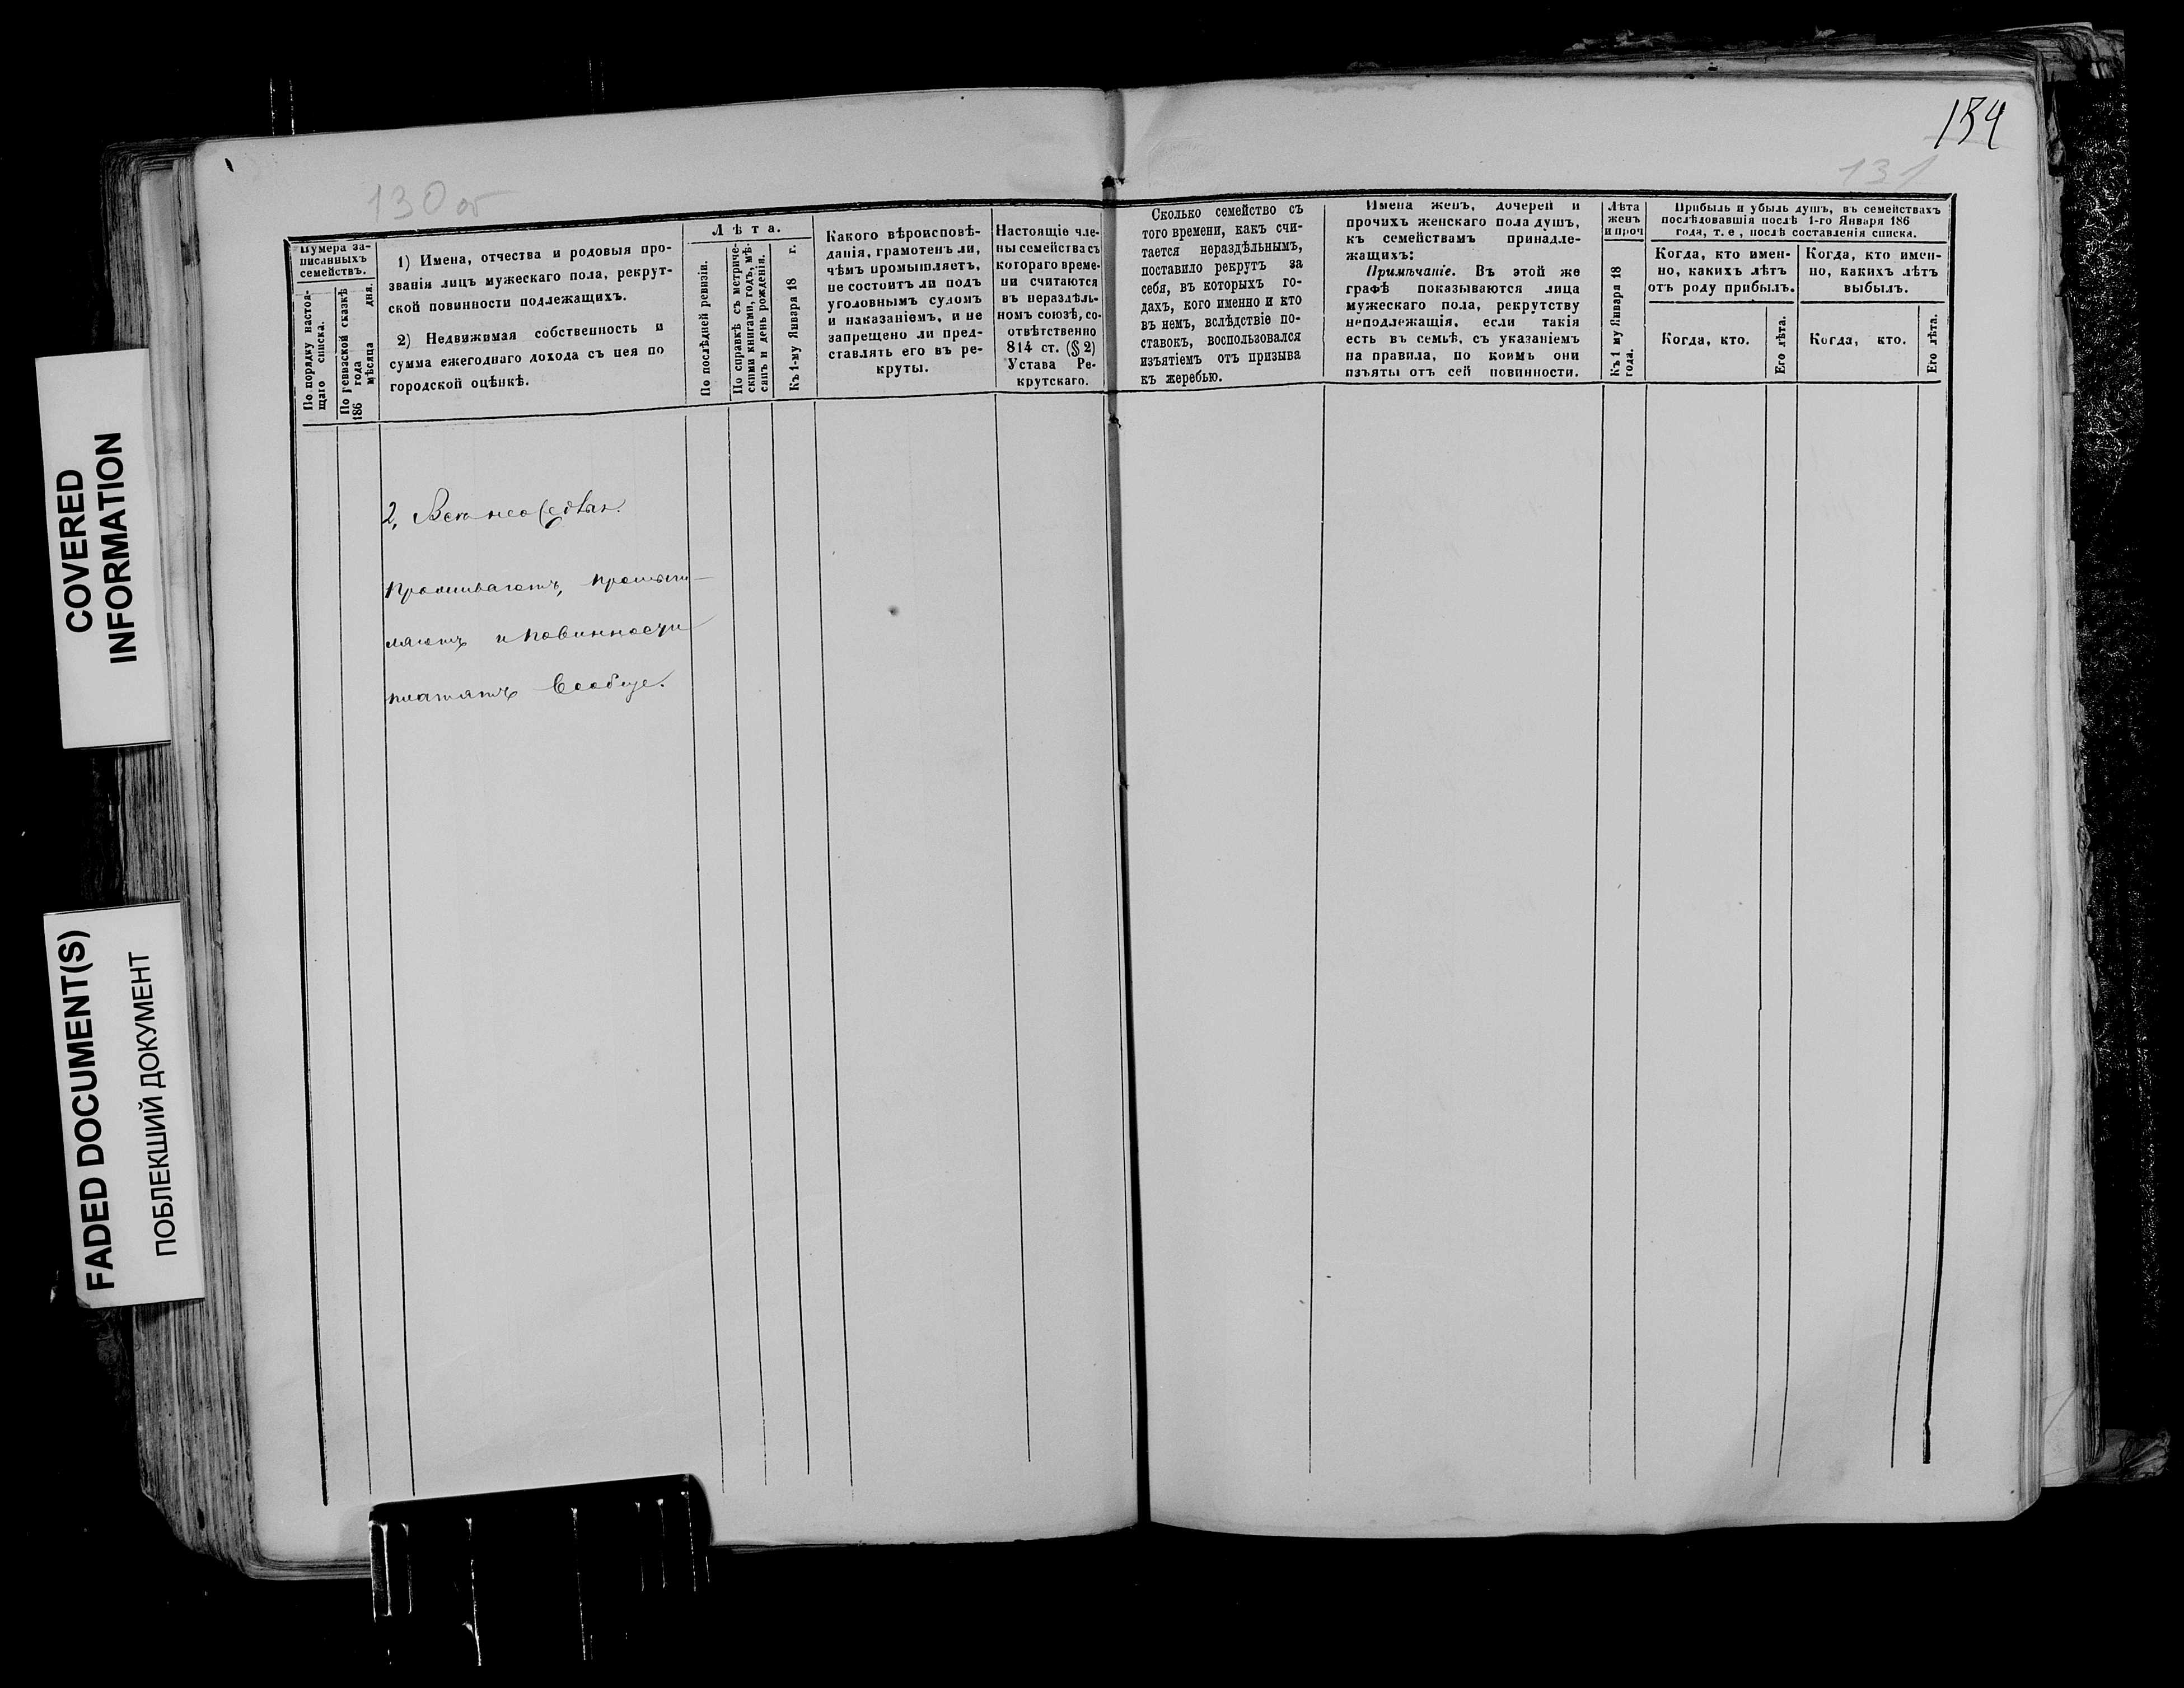 154
131
130 об
Нумера за-
писанныхъ
семействъ.
По порядку настоя-
щаго списка.
По ревизской сказкѣ
186 года мѣсяца дня.
1) Имена, отчества и родовыя про-
званія лицъ мужескаго пола, рекрут-
ской повинности подлежащихъ.
2) Недвижимая собственность и
сумма ежегоднаго дохода съ нея по
городской оцѣнкѣ.
Лѣта.
По послѣдней ревизіи.
По справкѣ съ метриче-
скими книгами, годъ, мѣ-
сяцъ и день рожденія.
Къ 1-му Января 18 г.
Какого вѣроисповѣ-
данія, грамотенъ ли,
чѣмъ промышляетъ,
не состоитъ ли подъ
уголовнымъ судомъ
и наказаніемъ, и не
запрещено ли пред-
ставлять его въ ре-
круты.
Настоящіе чле-
ны семейства съ
котораго време-
ни считаются
въ нераздѣль-
номъ союзѣ, со-
отвѣтственно
814 ст. (§ 2)
Устава Ре-
крутскаго.
Сколько семейство съ
того времени, какъ счи-
тается нераздѣльнымъ,
поставило рекрутъ за
себя, въ которыхъ го-
дахъ, кого именно и кто
въ немъ, вслѣдствіе по-
ставокъ, воспользовался
изъятіемъ отъ призыва
къ жеребью.
Имена женъ, дочерей и
прочихъ женскаго пола душъ,
къ семействамъ принадле-
жащихъ:
Примѣчаніе. Въ этой же
графѣ показываются лица
мужескаго пола, рекрутству
неподлежащія, если такія
есть въ семьѣ, съ указаніемъ
на правила, по коимъ они
изъяты отъ сей повинности.
Лѣта
женъ
и проч
Къ 1 му Января 18
года.
Прибыль и убыль душъ, въ семействахъ
послѣдовавшія послѣ 1-го Января 186
года, т. е, послѣ составленія списка.
Когда, кто имен-
но, какихъ лѣтъ
отъ роду прибылъ.
Когда, кто имен-
но, какихъ лѣтъ
выбылъ.
Когда, кто.
Его лѣта.
Когда, кто.
Его лѣта.
2,
Проживаютъ, промыш-
ляютъ и повинности
платятъ вообще.
COVERED
INFORMATION
FADED DOCUMENT(S)
ПОБЛЕКШИЙ ДОКУМЕНТ